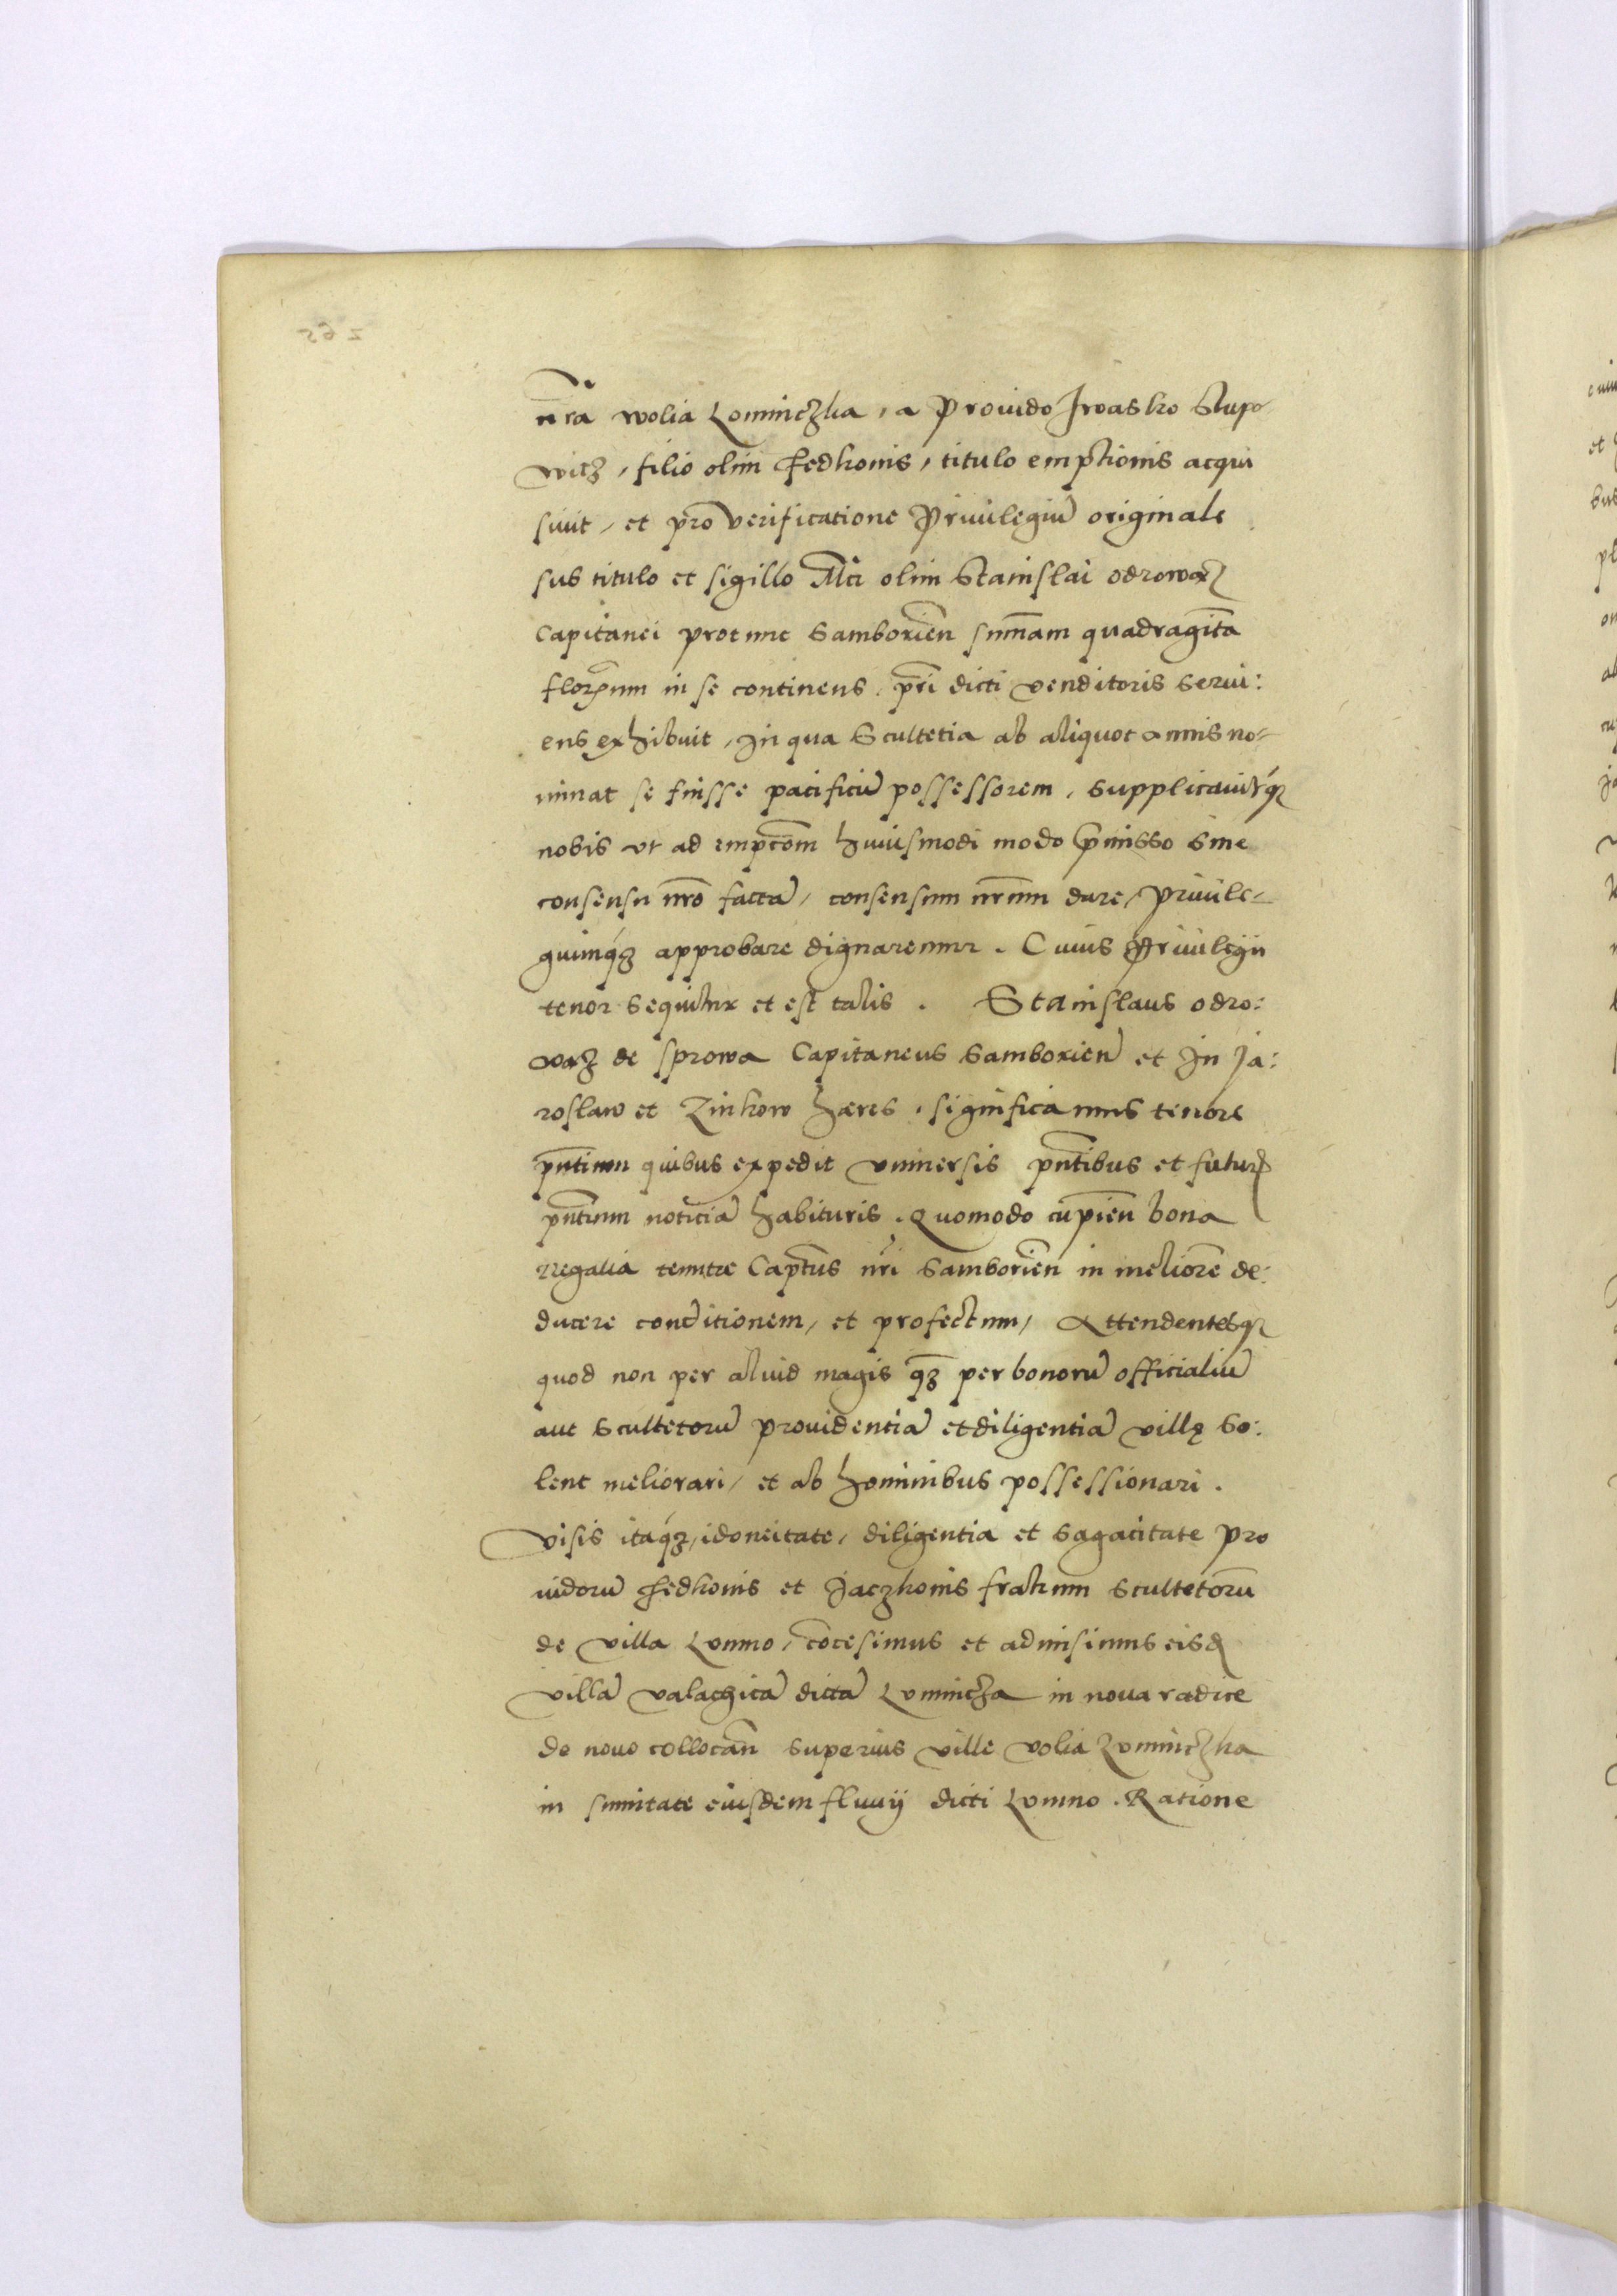 nr̃a wolia Lominczka, a Prouido Jwasko Stupo
witz, filio olim Fedkonis, titulo emptionis acqui
siuit, et pro verificatione Priuilegiũ originale
sub titulo et sigillo Mci olim Stanislai odrowąz
Capitanei protunc Samborieñ sum̃am quadraginta
florenum in se continens, pr̃i dicti venditoris Serui:
ens exhibuit, In qua Scultetia ab aliquot annis no-
minat se fuisse pacificũ possessorem, Supplicauitqȝ
nobis vt ad emptõem huiusmodi modo p̃misso sine
consensu nr̃o factã, consensum nr̃um dare, Priuile-
giumqȝ approbare dignaremur. Cuius Priuilegij
tenor sequitur et est talis. Stanislaus odro:
wąz de Sprowa Capitaneus Samborieñ et In Ja:
roslaw et Zinkow hæres, significamus tenore
pñtium quibus expedit vniuersis pñtibus et futur̃
pñtium noticiã habituris. Quomodo cupieñ bona
Regalia tenutæ Capt̃us nr̃i Samborieñ in meliorẽ de:
ducere conditionem, et profectum, Attendentesqȝ
quod non per aliud magis qȝ per bonorũ officialiũ
aut Scultetorũ prouidentiã et diligentiã villę so:
lent meliorari, et ab hominibus possessionari.
Visis itaqȝ, idoneitate, diligentia et sagacitate pro
uidorũ Fedkonis et Jaczkonis fratrum Scultetorũ
de villa Lomno, cõcesimus et admisimus eisd̃
villã valachicã dictã Lomincza in noua radice
de nouo collocañ superius ville volia Lominczka
in sum̃itate eiusdem fluuij dicti Lomno. Ratione